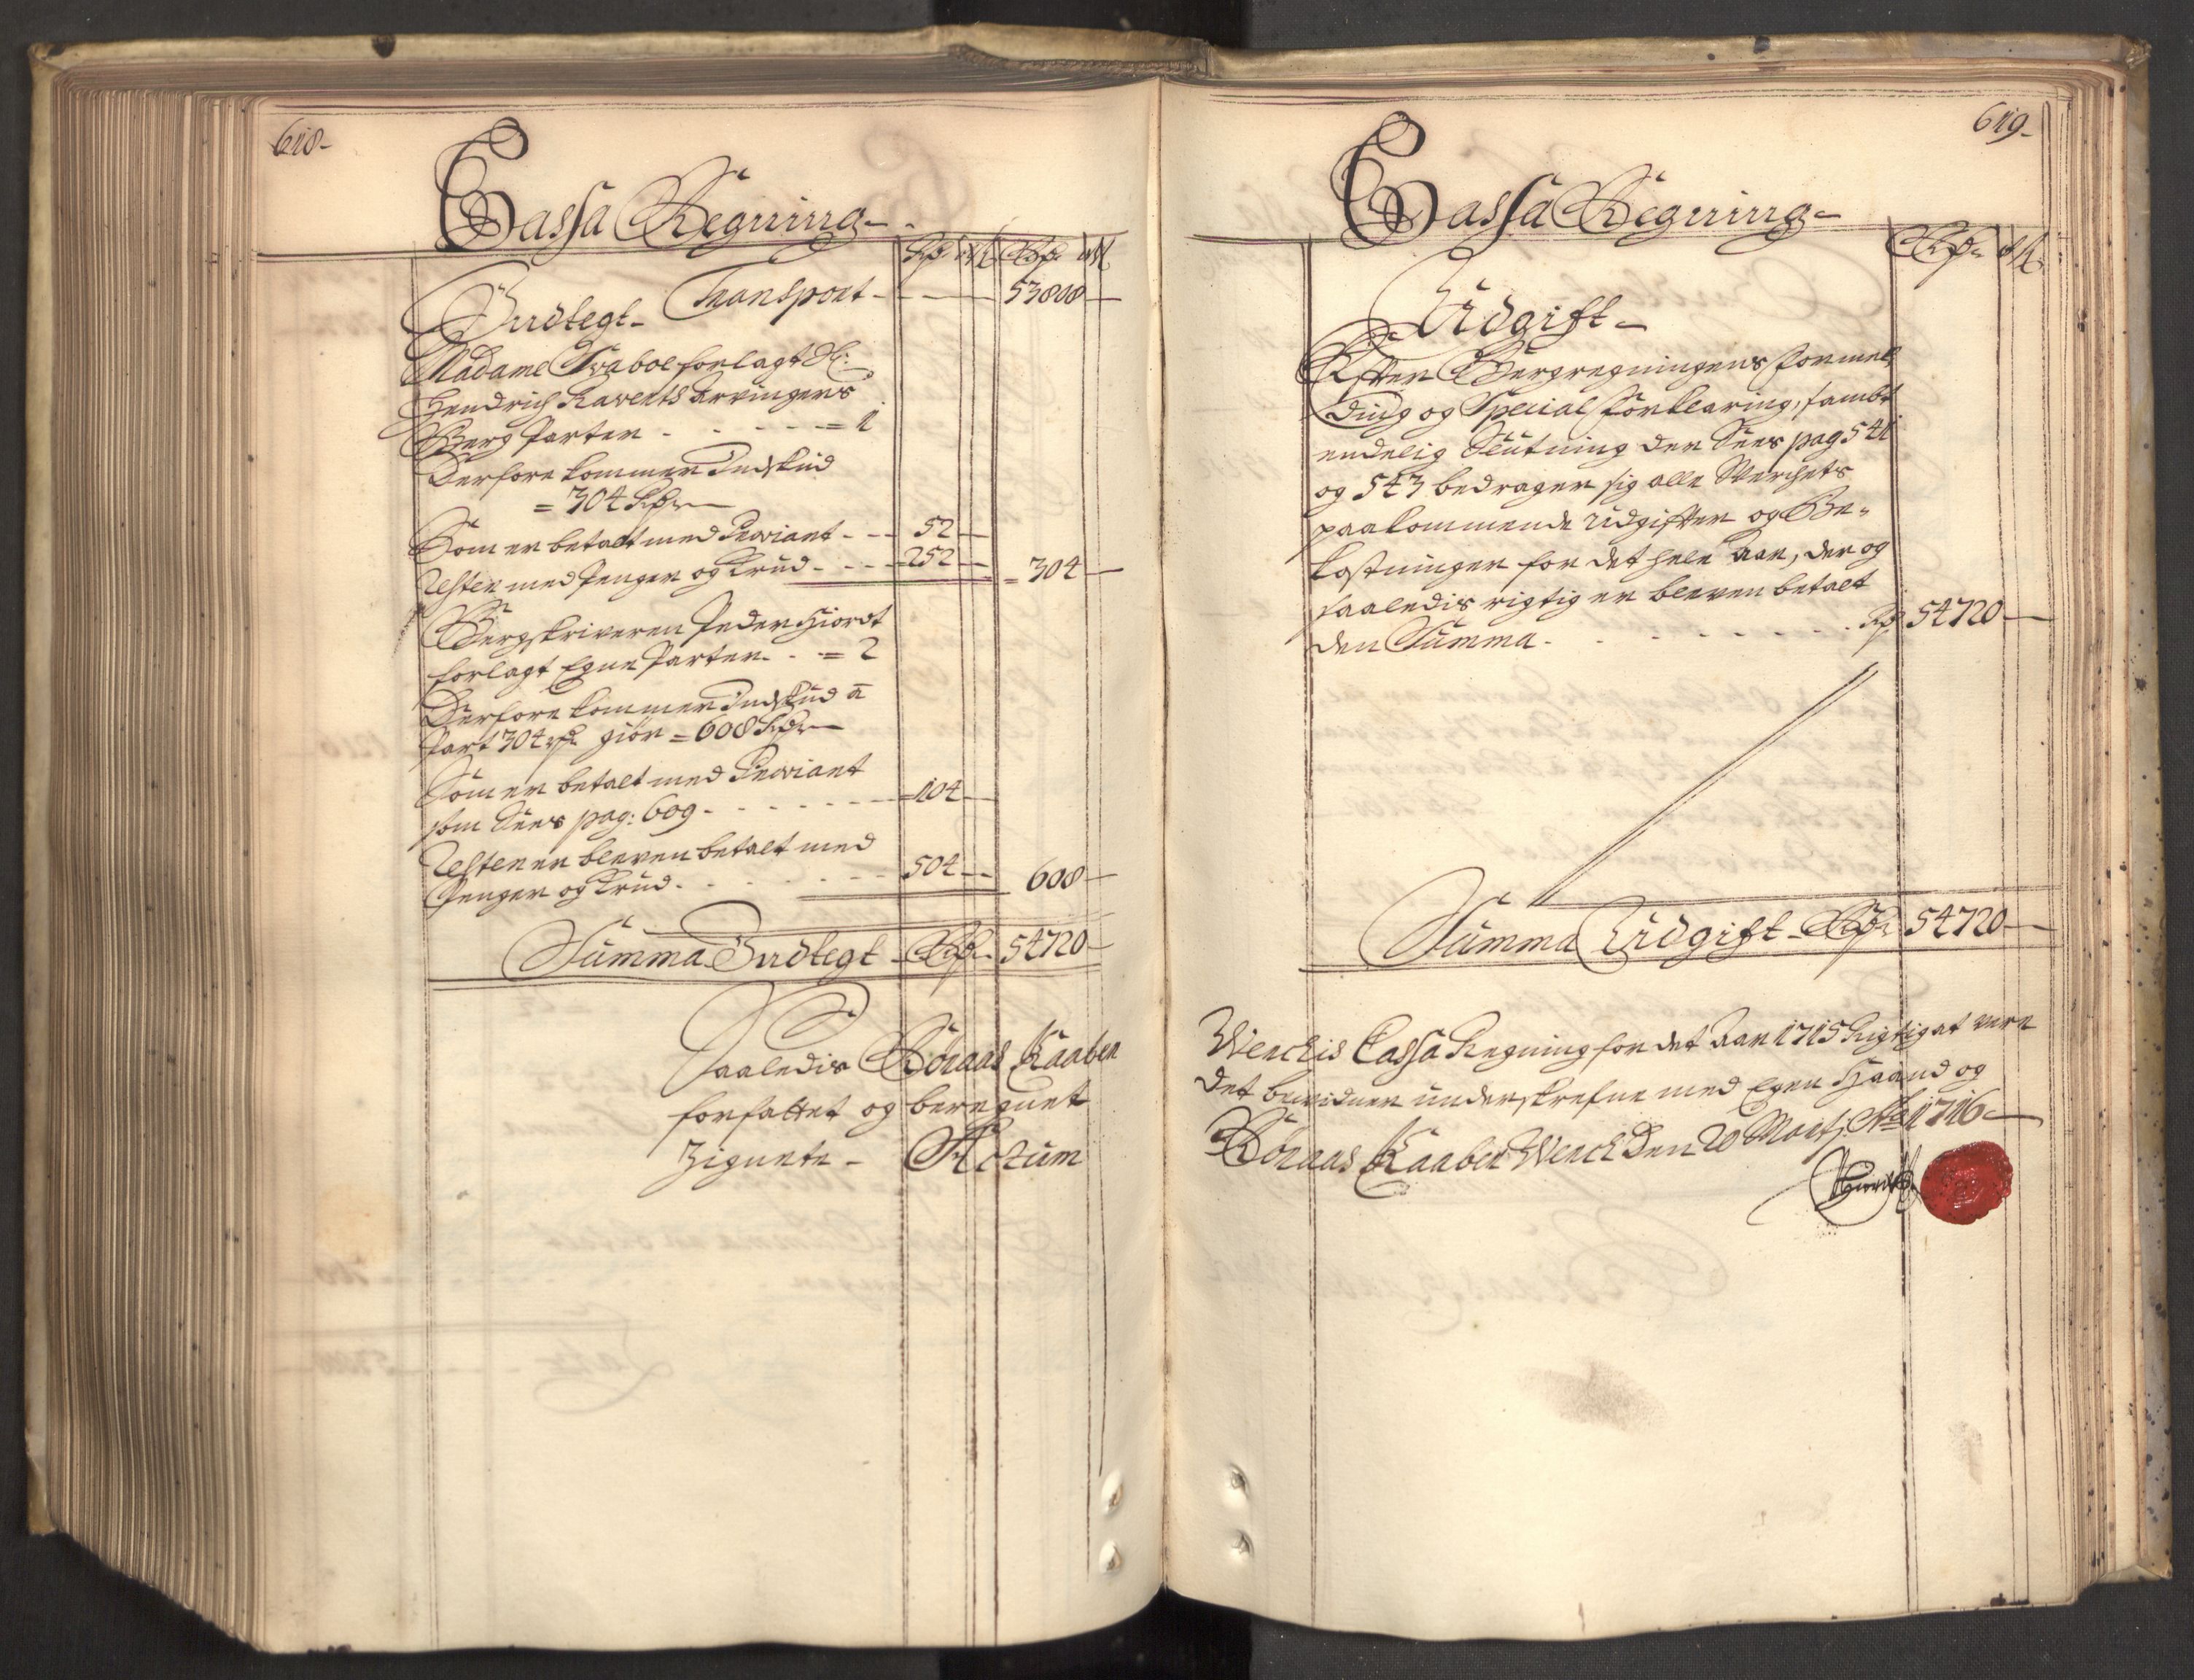 618-
Cassa Regning-
Rd M Rdr M
Indtegt- Transport - - 53808 -
Madame Svaboe forlagt Sl:
Hendrich Kavents Arvingers
Berg Parter - - - - = 1
Derfore kommer Indskud
= 304 Rdr
Som er betalt med Proviant - - 52 -
Resten med Penger og Krud - - - 252 - = 304 -
Bergskriveren Peder Hiordt
forlagt Egne Parter - - = 2
Derfore kommer Indskud a
Part 304 rdr giör = 608 Rdr
Som er betalt med Proviant
som Sees pag: 609 - - - - - - = 104 -
Resten er bleven betalt med
Penger og Krud - - - - - - 504 - 608 -
Summa Indtegt - Rdr - 54720 -
Saaledis Röraas Kaaber
forfattet og beregnet
Zignete - Actum
619-
Cassa Regning-
Rdr M
Udgift-
Efter Bergregningens formel
ding og Special forklaring, sambt
endelig Slutning der Sees pag 541
og 543 bedrager sig alle Werchets
paakommende Udgifter og Be-
kostninger for det hele Aar, der og
saaledis rigtig er bleven betalt
den Summa - - - - - - Rd 54720 -
Summa Udgift - Rdr 54720 -
Werckis Cassa Regning for det Aar 1715 Rigtig at være
det bevidner underskrefne med Egen Haand og
Röraas Kaaber Werck Den 20 Marts Ao 1716 -
PHiordt